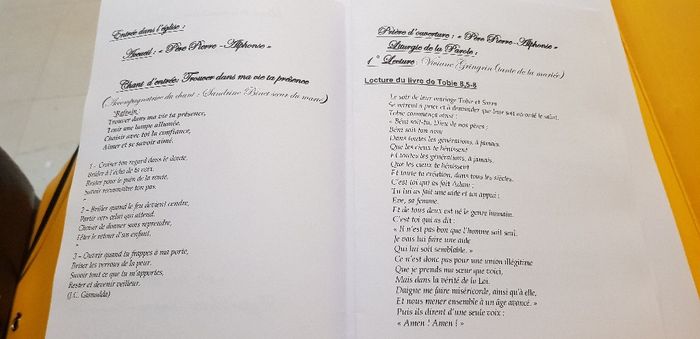 Entrée dans l'église :
Accueil : « Père Pierre -Alphonse »
Chant d'entrée: Trouver dans ma vie ta présence
(Accompagnatrice du chant : Sandrine Binet sœur du marié)
Refrain
Trouver dans ma vie ta présence,
Tenir une lampe allumée,
Choisir avec toi la confiance,
Aimer et se savoir aimé.
1 - Croiser ton regard dans le doute,
Brûler à l'écho de ta voix,
Rester pour le pain de la route,
Savoir reconnaître ton pas.
2 – Brûler quand le feu devient cendre,
Partir vers celui qui attend,
Choisir de donner sans reprendre,
Fêter le retour d'un enfant.
3 – Ouvrir quand tu frappes à ma porte,
Briser les verrous de la peur,
Savoir tout ce que tu m'apportes,
Rester et devenir veilleur.
(J.C. Gianadda)
Prière d'ouverture : « Père Pierre-Alphonse »
Liturgie de la Parole :
1° Lecture : Viviane (tante de la mariée)
Lecture du livre de Tobie 8,5-8
Le soir de leur mariage Tobie et Sarra
Se mirent à prier et à demander que leur soit accordé le salut.
Tobie commença ainsi :
« Béni sois-tu, Dieu de nos pères ;
Béni soit ton nom
Dans toutes les générations, à jamais.
Que les cieux te bénissent
Et toutes les générations, à jamais.
Que les cieux te bénissent
Et toute ta création, dans tous les siècles.
C'est toi qui as fait Adam ;
Tu lui as fait une aide et un appui :
Eve, sa femme.
Et de tous deux est né le genre humain.
C'est toi qui as dit :
« Il n'est pas bon que l'homme soit seul.
Je vais lui faire une aide
Qui lui soit semblable. »
Ce n'est donc pas pour une union illégitime
Que je prends ma sœur que voici,
Mais dans la vérité de la Loi.
Daigne me faire miséricorde, ainsi qu'à elle,
Et nous mener ensemble à un âge avancé. »
Puis ils dirent d'une seule voix :
« Amen ! Amen ! »